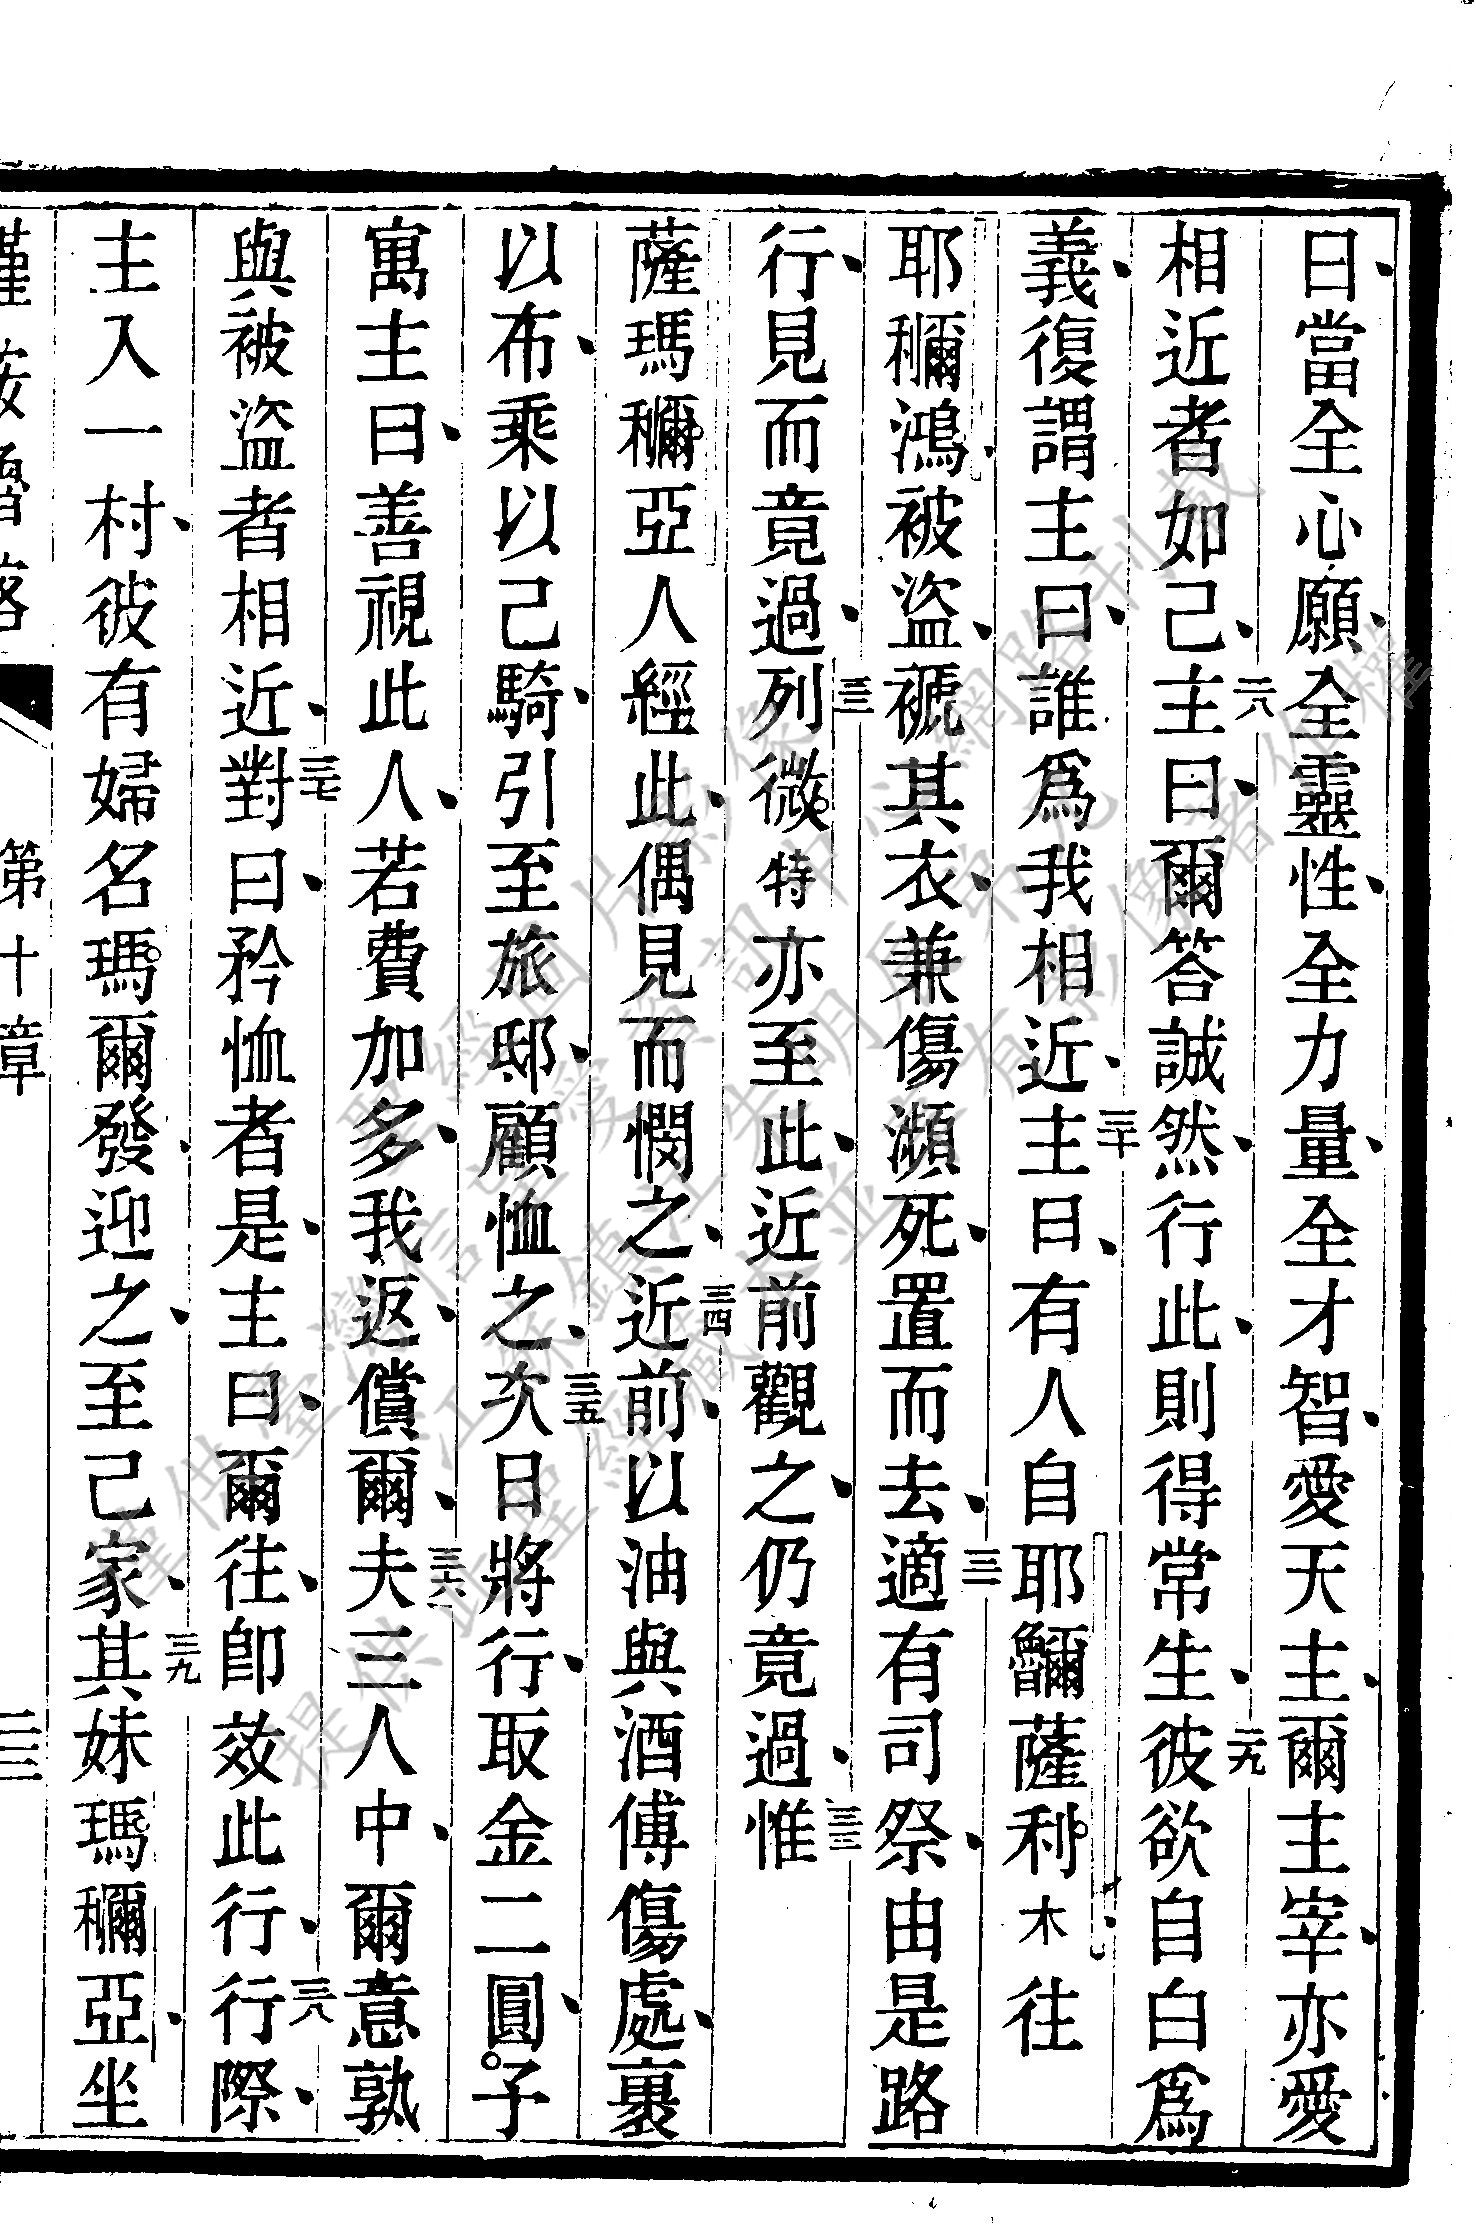 曰、當全心願、全靈性、全力量、全才智、愛天主、爾主宰、亦愛
相近者如己、二八主曰、爾答誠然、行此、則得常生、二九彼欲自白爲
義、復謂主曰、誰爲我相近、三十主曰、有人自耶⿰魯爾薩利木、往
耶⿰利爾鴻、被盜、褫其衣、兼傷瀕死、置而去、三一適有司祭、由是路
行、見而竟過、三二列微特亦至此、近前觀之、仍竟過、三三惟
薩瑪⿰利爾亞人經此、偶見而憫之、三四近前、以油與酒傅傷處、裹
以布、乘以己騎、引至旅邸、顧恤之、三五次日將行、取金二圓、予
寓主曰、善視此人、若費加多、我返、償爾、三六夫三人中、爾意孰
與被盜者相近、三七對曰、矜恤者是、主曰、爾往、卽效此行、三八行際、
主入一村、彼有婦名瑪爾發、迎之、至己家、三九其妹瑪⿰利爾亞、坐
第十章 二三